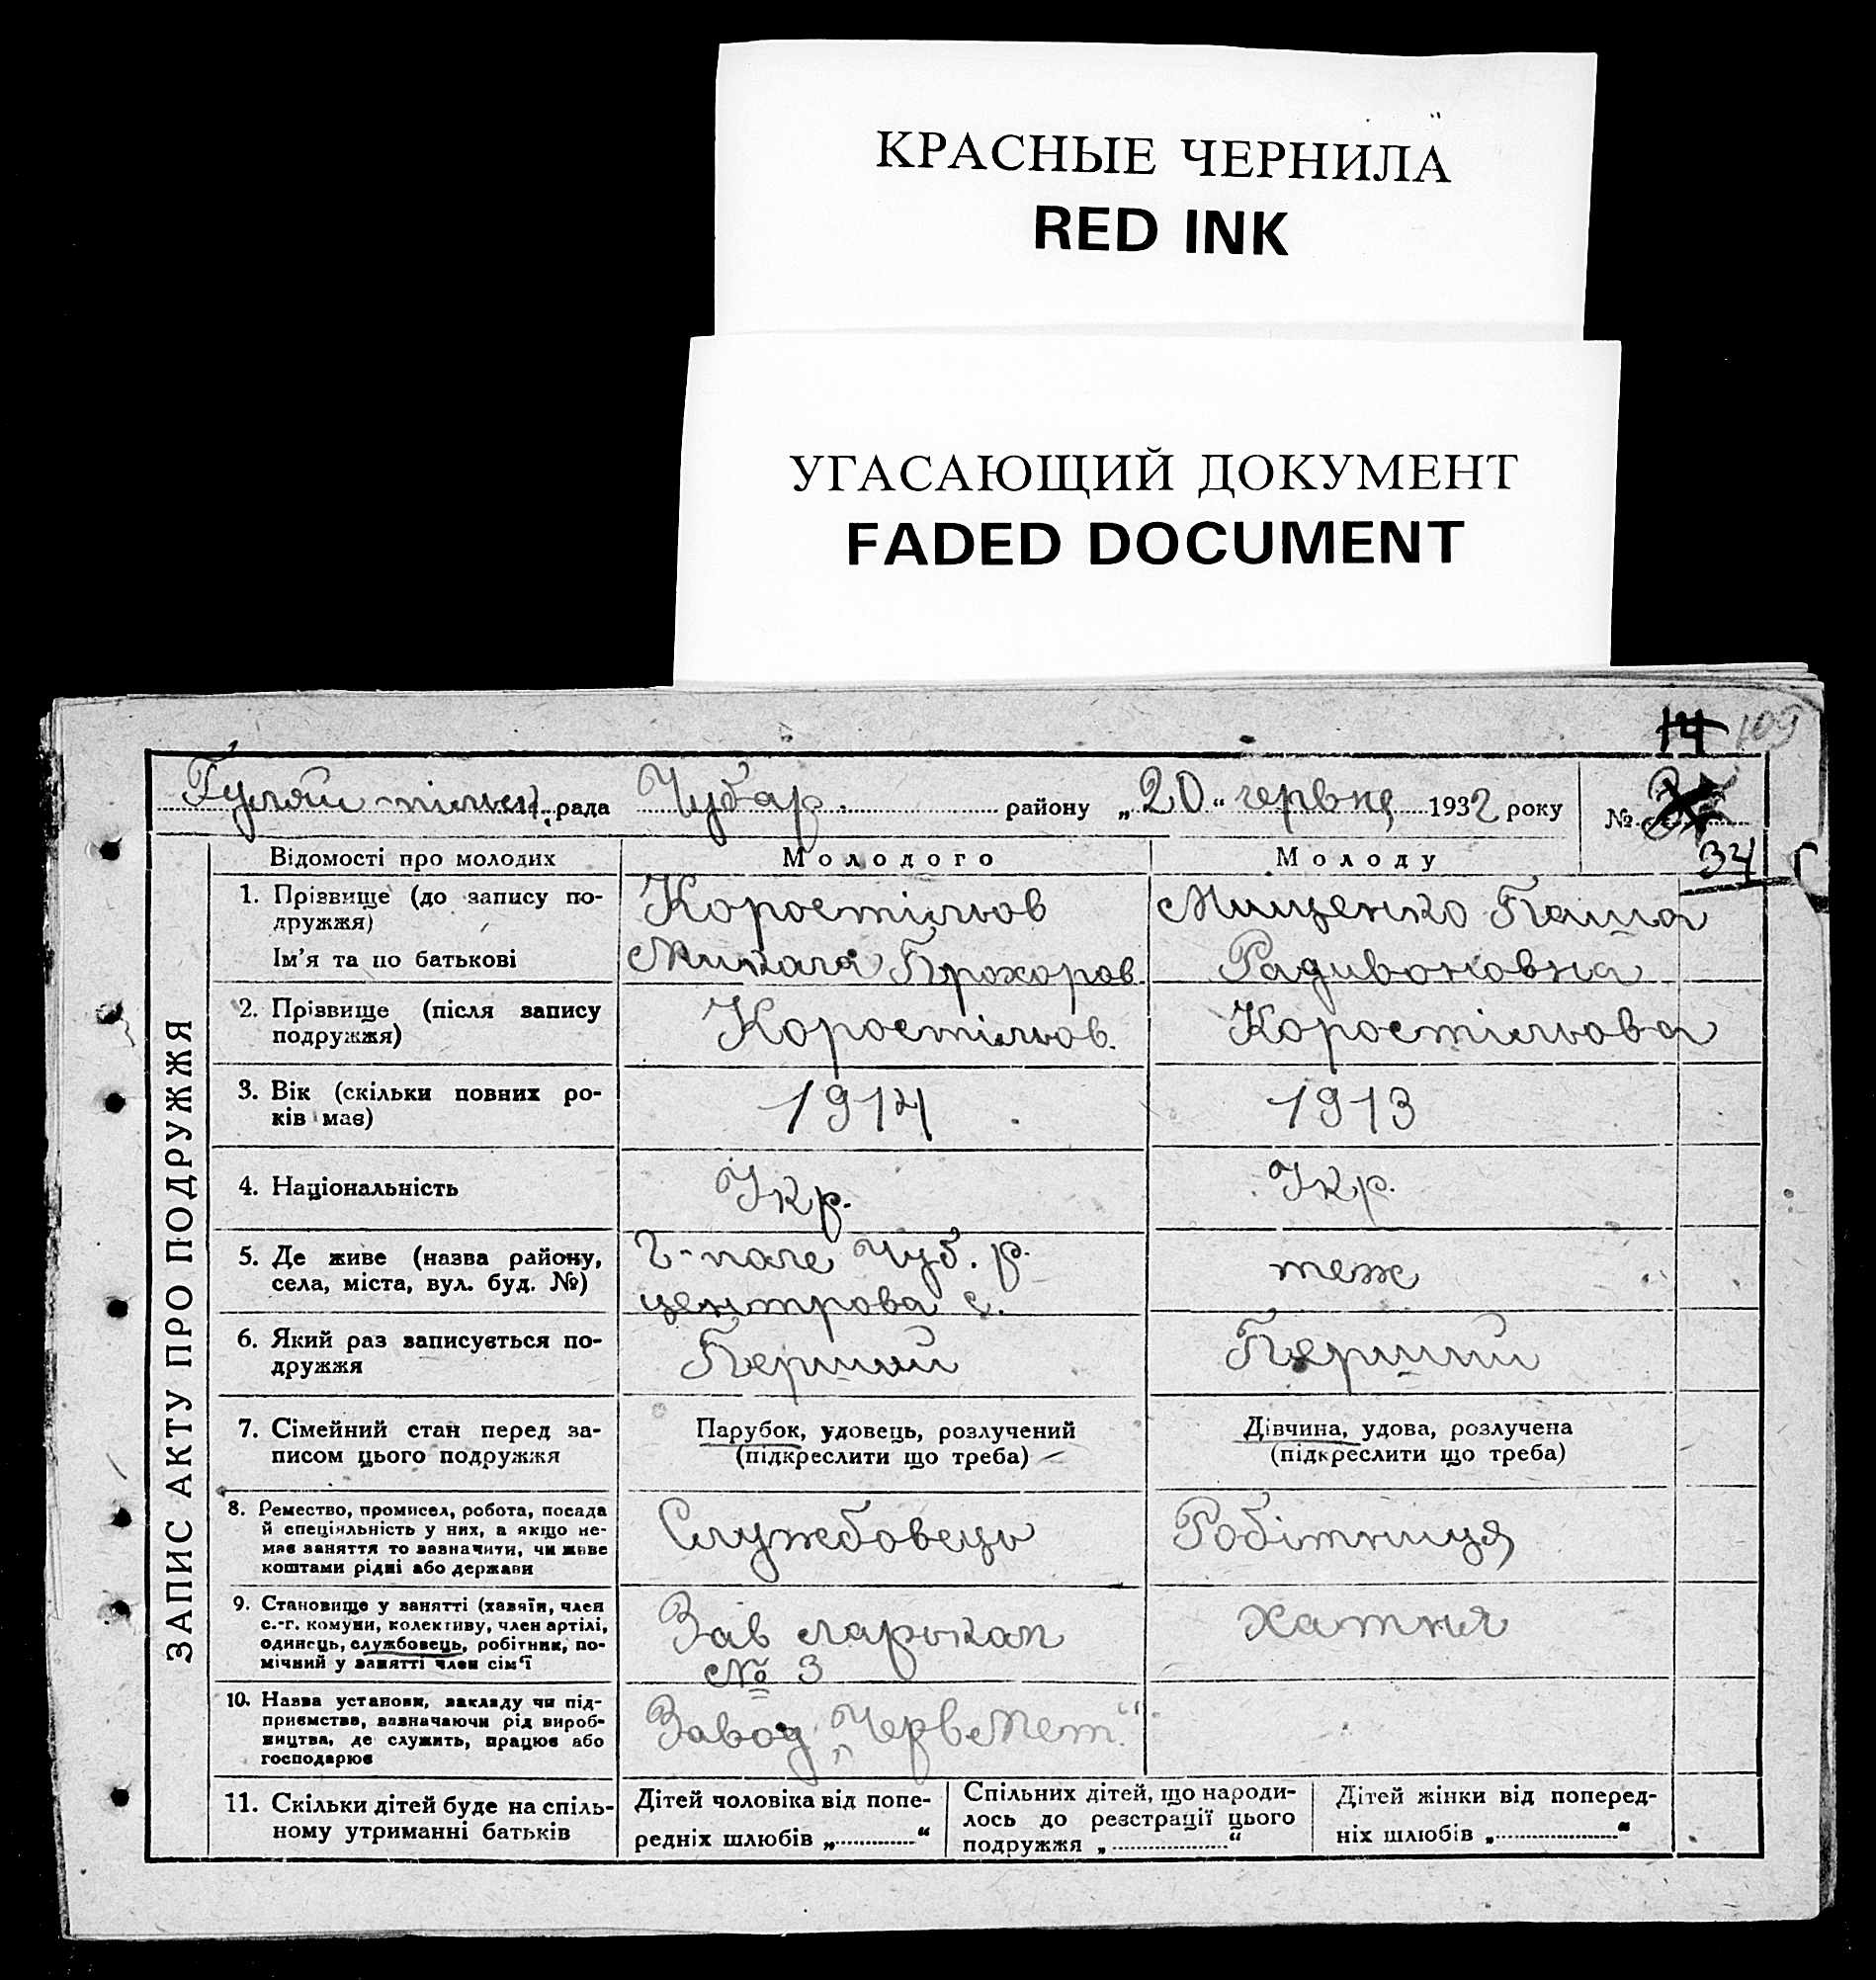 КРАСНЫЕ ЧЕРНИЛА
RED INK
УГАСАЮЩИЙ ДОКУМЕНТ
FADED DOCUMENT
14 109
Гуляй-пільськ. рада Чубар. району „20“ червня 1932 року №
34
ЗАПИС АКТУ ПРО ПОДРУЖЖЯ
Відомості про молодих Молодого Молоду
1. Прізвище (до запису по-
дружжя)
Ім’я та по батькові
Коростільов
Микола Прохоров
Мищенко Паша
Радивоновна
2. Прізвище (після запису
подружжя)
Коростільов.
Коростільова
3. Вік (скільки повних ро-
ків має)
1914
1913
4. Національність
Укр.
Укр.
5. Де живе (назва району,
села, міста, вул. буд. №)
Г-поле Чуб. р.
центрова с.
теж
6. Який раз записується по-
дружжя
Перший
Перший
7. Сімейний стан перед за-
писом цього подружжя
Парубок, удовець, розлучений
(підкреслити що треба)
Дівчина, удова, розлучена
(підкреслити що треба)
8. Ремество, промисел, робота, посада
й спеціяльність у них, а якщо не-
має заняття то зазначити, чи живе
коштами рідні або держави
Службовець
Робітниця
9. Становище у занятті (хазяїн, член
с.-г. комуни, колективу, член артілі,
одинець, службовець, робітник, по-
мічний у занятті член сім’ї
Зав ларьком
№ 3
хатня
10. Назва установи, закладу чи під-
приємства, зазначаючи рід вироб-
ництва, де служить, працює або
господарює
Завод „ЧервМет.“
11. Скільки дітей буде на спіль-
ному утриманні батьків
Дітей чоловіка від попе-
редніх шлюбів „.............“
Спільних дітей, що народи-
лось до реєстрації цього
подружжя „...................“
Дітей жінки від поперед-
ніх шлюбів „....................“